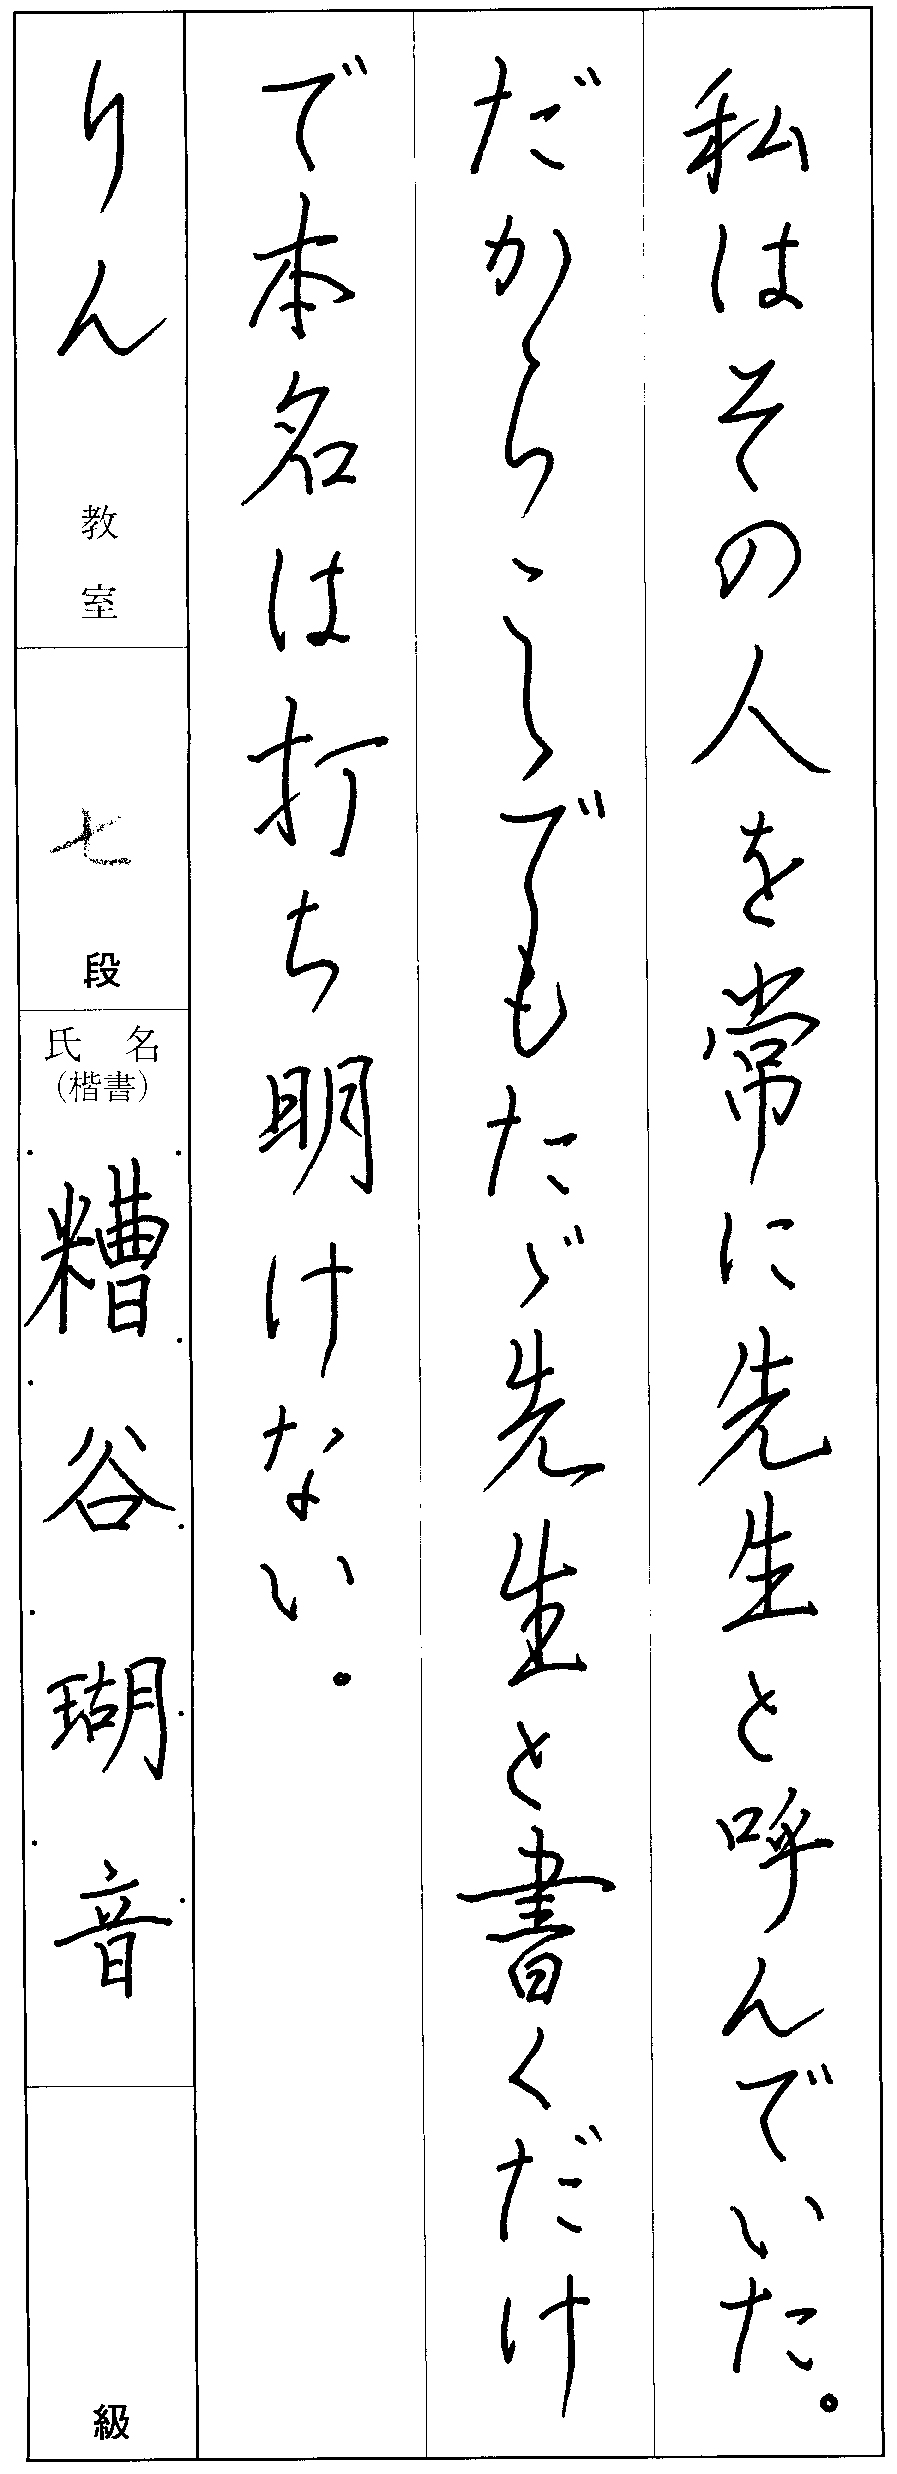 私はその人を常に先生と呼んでいた。
だからここでもたゞ先生と書くだけ
で本名は打ち明けない。
りん 教室
七 段
氏名
（楷書）
糟谷瑚音
級